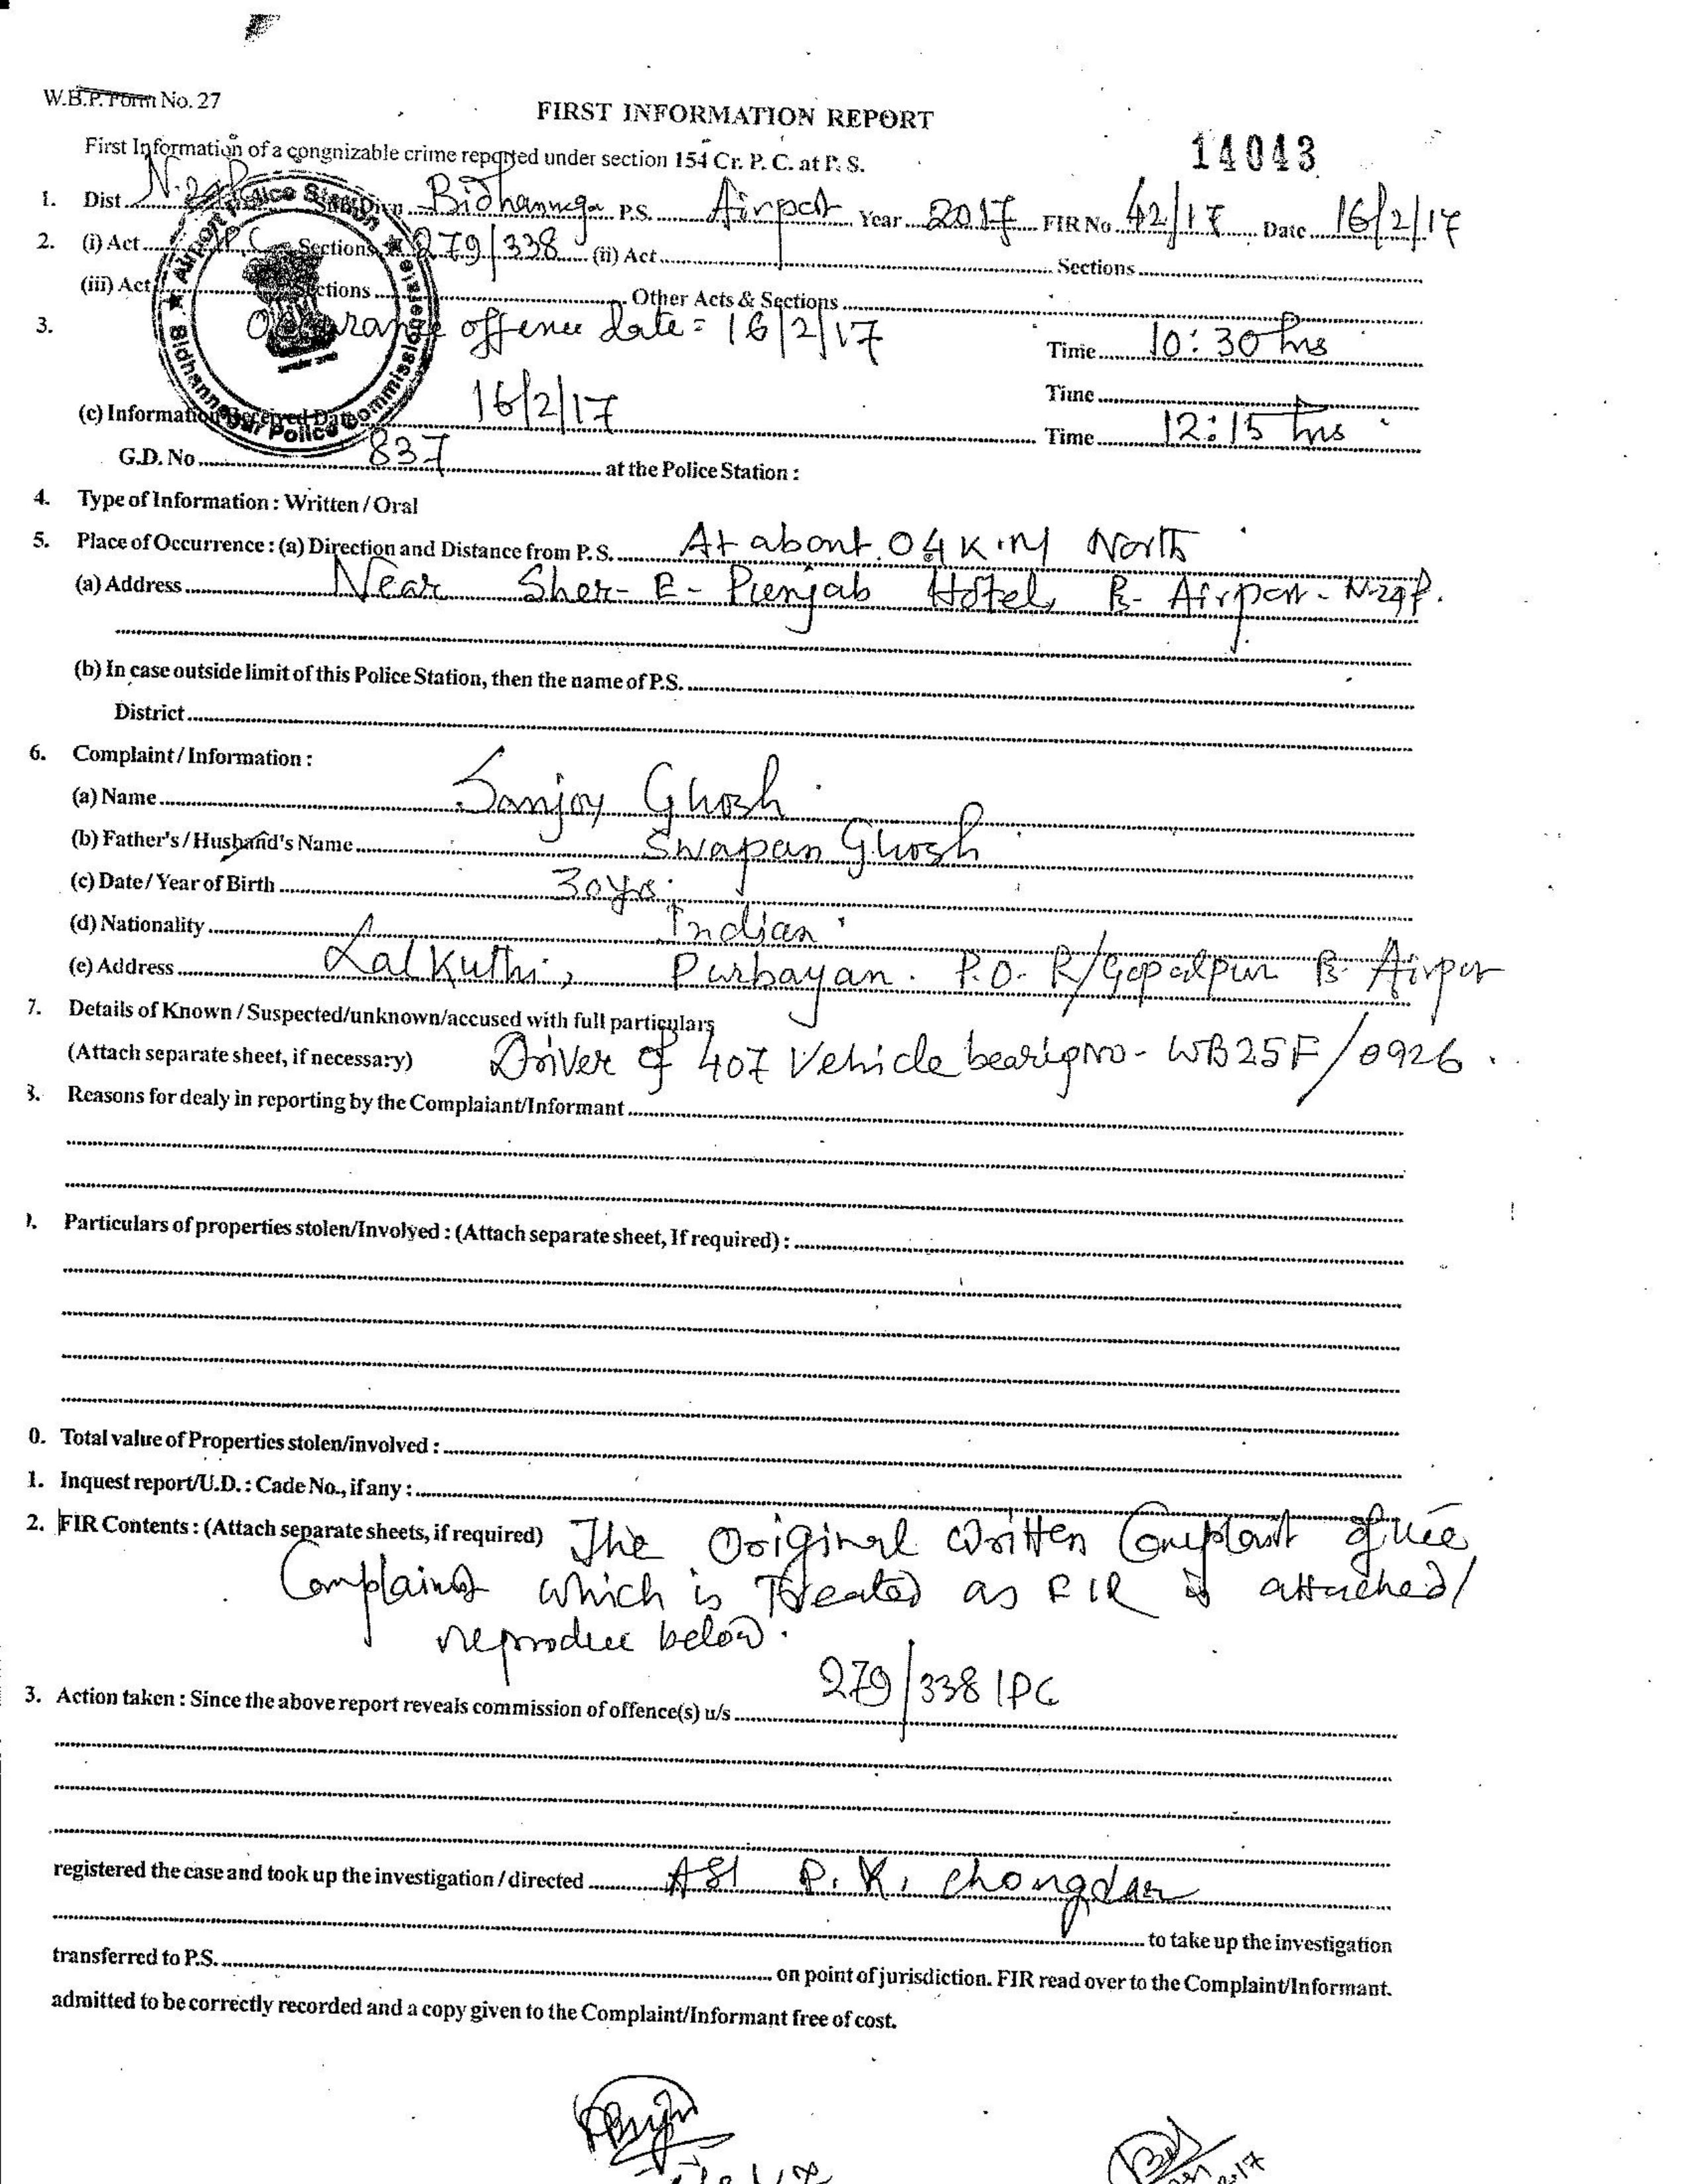 W.B.P. Form No. 27
FIRST INFORMATION REPORT
14043
First Information of a congnizable crime reported under section 154 Cr. P. C. at P. S.
1. Dist. Bidhannaga P.S. Airport Year 2017 FIR No. 42/17 Date 16/2/17
2. (i) Act IPC Sections 279/338 (ii) Act Sections
(iii) Act Sections Other Acts & Sections
Airport Police Station
Bidhannagar Police Commissionerate
3. offence date = 16/2/17 Time 10:30 hrs
Time
(c) Information Received Date 16/2/17 Time 12:15 hrs
G.D. No 837 at the Police Station :
4. Type of Information : Written / Oral
5. Place of Occurrence : (a) Direction and Distance from P. S. At about 04 K.M North
(a) Address Near Sher-E-Punjab Hotel, PS- Airport - N-24P.
(b) In case outside limit of this Police Station, then the name of P.S.
District
6. Complaint / Information :
(a) Name Sanjoy Ghosh
(b) Father's / Husband's Name Swapan Ghosh
(c) Date / Year of Birth 30 yrs.
(d) Nationality Indian
(e) Address Lal Kuthi, Purbayan. P.O- R/Gopalpur PS- Airport
7. Details of Known / Suspected/unknown/accused with full particulars
(Attach separate sheet, if necessary) Driver of 407 Vehicle bearig no - WB25F/0926.
8. Reasons for dealy in reporting by the Complaiant/Informant
9. Particulars of properties stolen/Involved : (Attach separate sheet, If required) :
0. Total value of Properties stolen/involved :
1. Inquest report/U.D. : Cade No., if any :
2. FIR Contents : (Attach separate sheets, if required) The Original Written Complaint of the
Complaint which is Treated as FIR is attached/
reproduce below.
3. Action taken : Since the above report reveals commission of offence(s) u/s 279/338 IPC
registered the case and took up the investigation / directed ASI P. K. Chongdar
to take up the investigation
transferred to P.S. on point of jurisdiction. FIR read over to the Complaint/Informant.
admitted to be correctly recorded and a copy given to the Complaint/Informant free of cost.